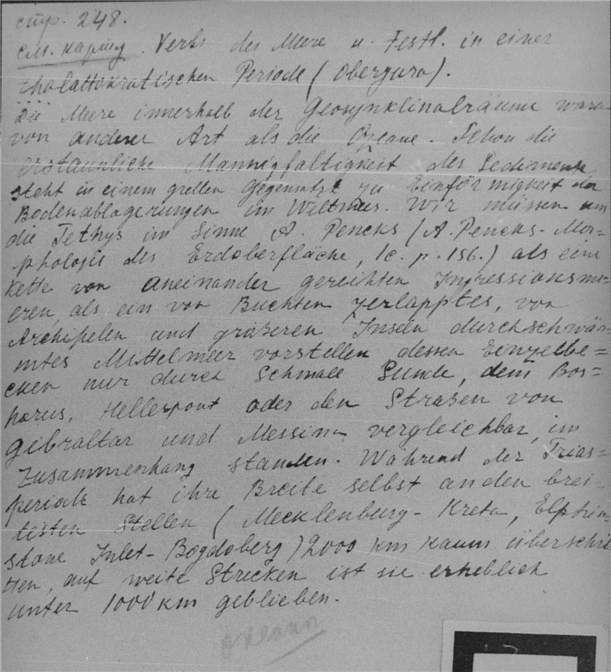 стр. 248.
см. карту. Verb. des Meere u. Festl. in einer
thalattokratischen Periode (Oberjura).
Die Meere innerhalb der Geosynklinalräume waren
von anderer Art als die Ozeane. Schon die
erstaunliche Mannigfaltigkeit der Sedimente
steht in einem grellen Gegensatz zu Einförmigkeit der
Bodenablagerungen im Weltmeer. Wir müssen uns
die Tethys im Sinne A. Pencks (A. Pencks-Mor=
phologie der Erdoberfläche, l.c. p. 156.) als eine
Kette von aneinander gereihten Ingressionsme-
eren, als ein von Buchten zerlapptes, von
Archipelen und gräseren Inseln durchschwär-
mtes Mittelmeer vorstellen dessen Einzelbe=
cken nur durch Schmale Sunde, dem Bos=
porus, Hellespont oder den Straßen von
Gibraltar und Messina vergleichbar, im
Zusammenhang standen. Während der Trias=
periode hat ihre Breite selbst an den brei-
testen Stellen (Mecklenburg-Kreta, Elphin-
stone Inlet-Bogdoberg) 2000 km kaum überschri-
tten, auf weite Strecken ist sie erheblich
unter 1000 km geblieben.
океан